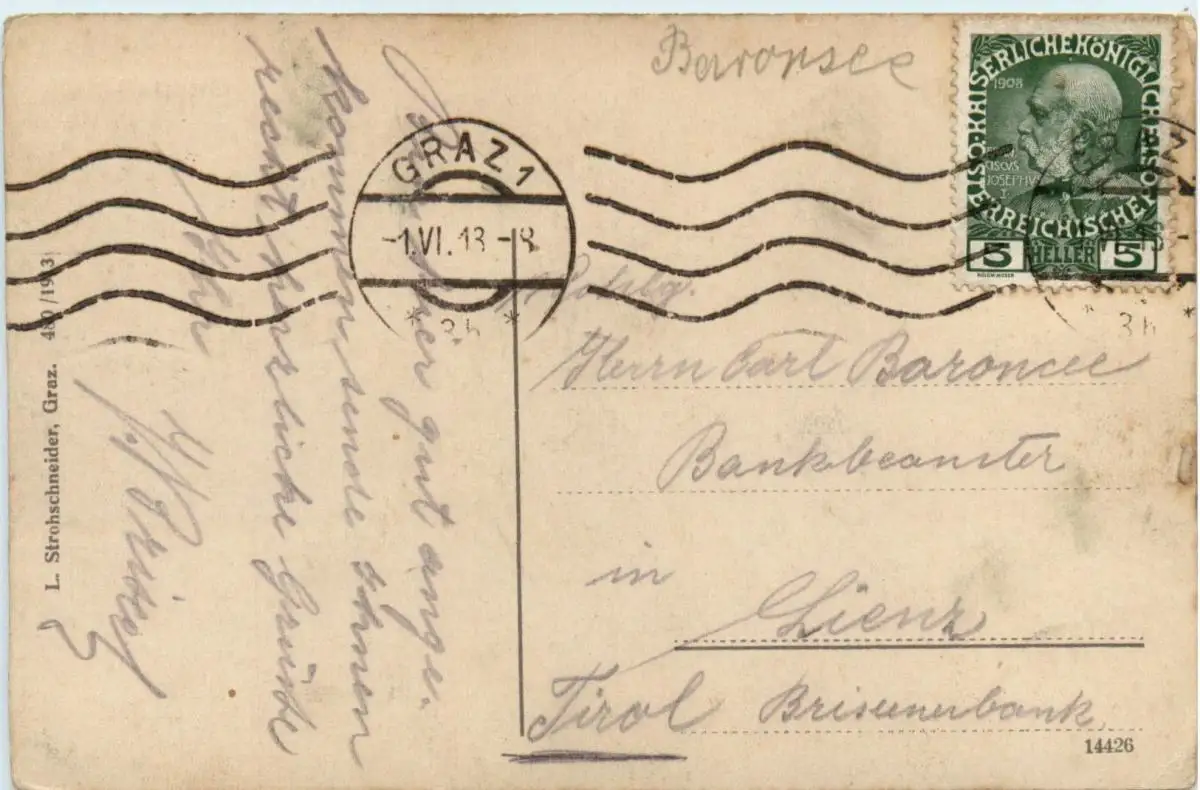 Baronsee
KAISERLICHE KÖNIGLICHE ÖSTERREICHISCHE POST
1908
JOSEPHVS
I.
5 HELLER 5
GRAZ 1
-1.VI.13-8
* 3b *
* 3b
hier gut ange-
kommen, sende Ihnen
recht herzliche Grüße
Ihr
Herrn Carl Baroncee
Bankbeamter
in
Lienz
Tirol Brixenerbank
14426
L. Strohschneider, Graz. 480/1913